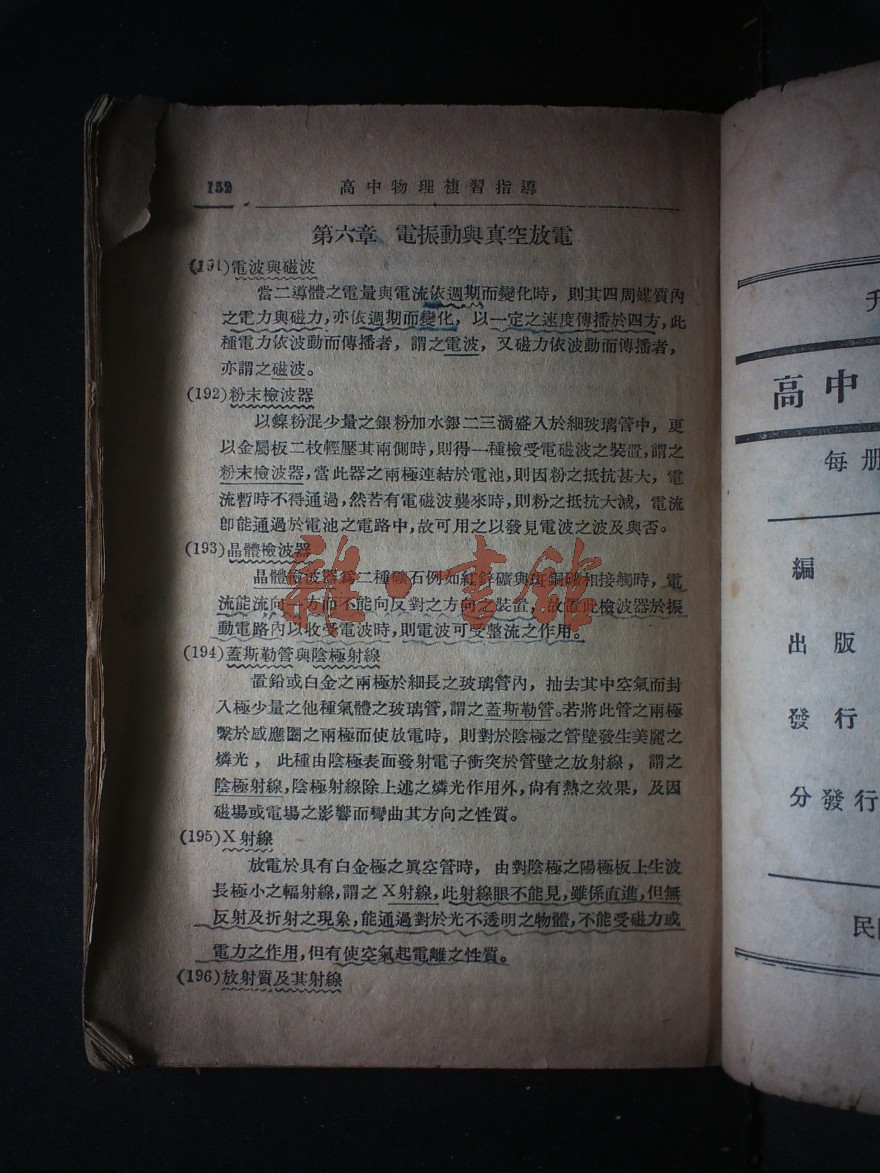 152 高中物理複習指導
第六章 電振動與真空放電
(191)電波與磁波
當二導體之電量與電流依週期而變化時，則其四周媒質內
之電力與磁力，亦依週期而變化，以一定之速度傳播於四方，此
種電力依波動而傳播者，謂之電波，又磁力依波動而傳播者，
亦謂之磁波。
(192)粉末檢波器
以鎳粉混少量之銀粉加水銀二三滴盛入於細玻璃管中，更
以金屬板二枚輕壓其兩側時，則得一種檢受電磁波之裝置，謂之
粉末檢波器，當此器之兩極連結於電池，則因粉之抵抗甚大，電
流暫時不得通過，然若有電磁波襲來時，則粉之抵抗大減，電流
卽能通過於電池之電路中，故可用之以發見電波之波及與否。
(193)晶體檢波器
晶體檢波器爲二種礦石例如紅鋅礦與斑銅礦相接觸時，電
流能流向一方而不能向反對之方向之裝置，故置此檢波器於振
動電路內以收受電波時，則電波可受整流之作用。
(194)蓋斯勒管與陰極射線
置鉛或白金之兩極於細長之玻璃管內，抽去其中空氣而封
入極少量之他種氣體之玻璃管，謂之蓋斯勒管。若將此管之兩極
繫於感應圈之兩極而使放電時，則對於陰極之管壁發生美麗之
燐光，此種由陰極表面發射電子衝突於管壁之放射線，謂之
陰極射線，陰極射線除上述之燐光作用外，尙有熱之效果，及因
磁場或電場之影響而彎曲其方向之性質。
(195)X射線
放電於具有白金極之眞空管時，由對陰極之陽極板上生波
長極小之輻射線，謂之X射線，此射線眼不能見，雖係直進，但無
反射及折射之現象，能通過對於光不透明之物體，不能受磁力或
電力之作用，但有使空氣起電離之性質。
(196)放射質及其射線
雜·書館
升
高中
每册
編
出版
發行
分發行
民